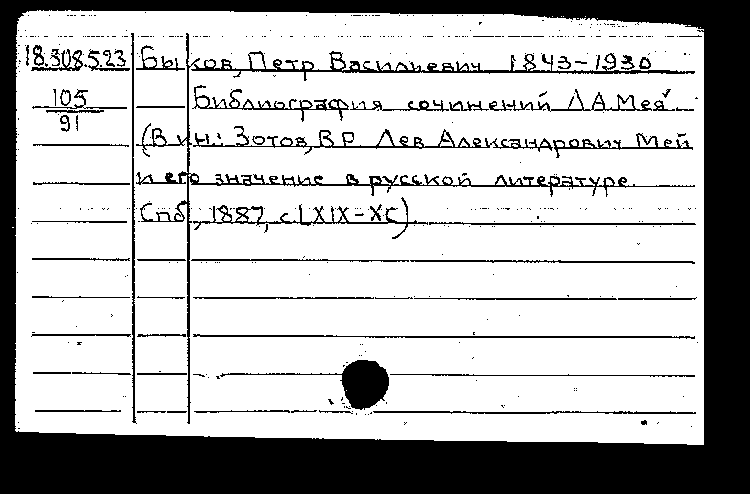 18.308.5.23 Быков, Петр Васильевич 1843-1930
105 Библиография сочинений Л.А.Мея.
91
(В кн.: Зотов, В.Р. Лев Александрович Мей
и его значение в русской литературе.
Спб, 1887, с. LXIX-XC).